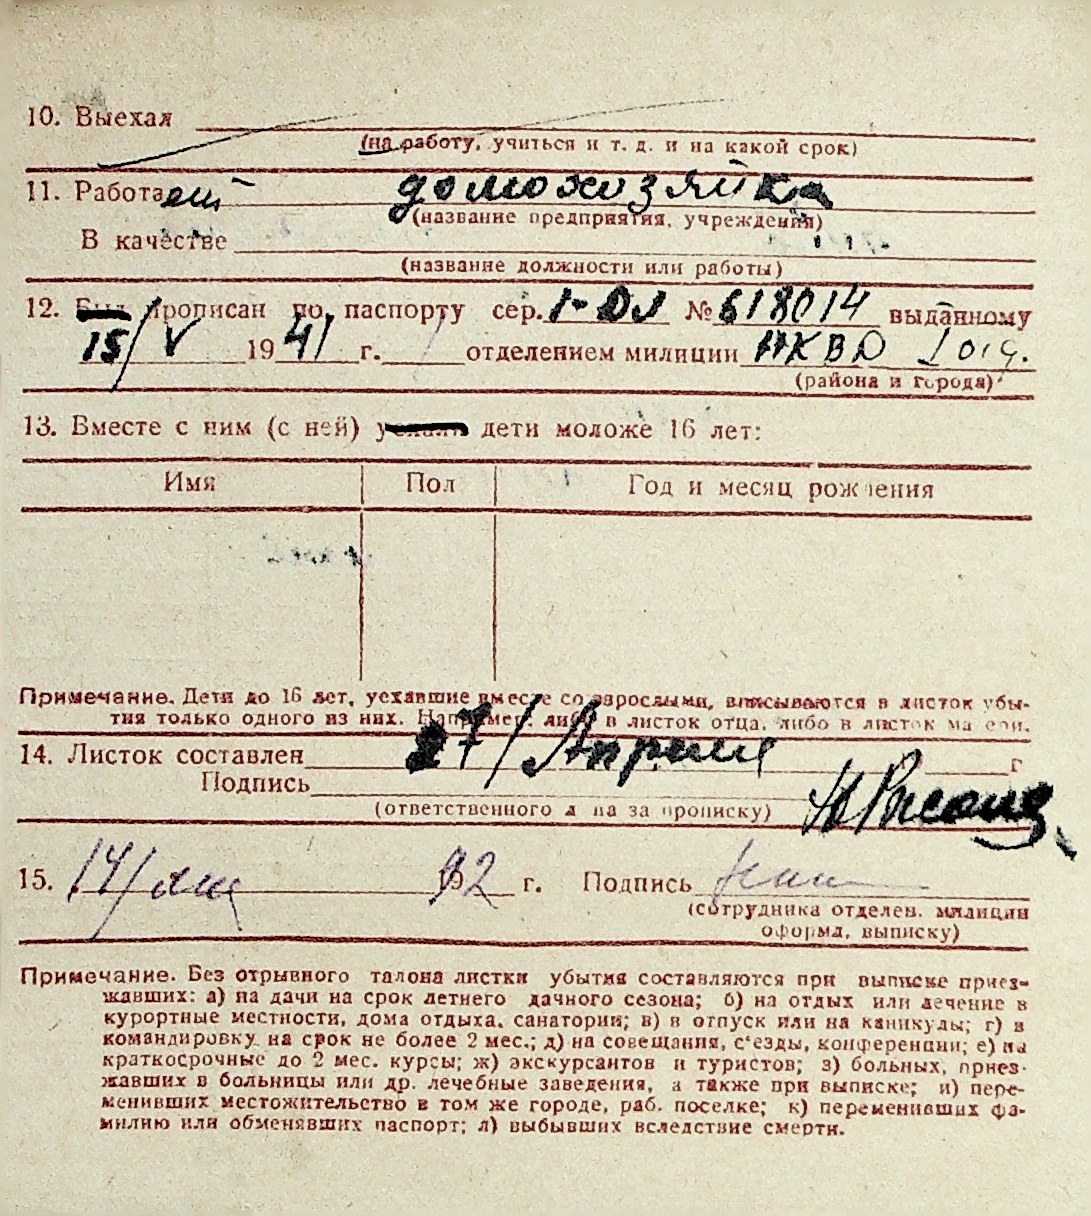 10. Выехал
(на работу, учиться и т. д. и на какой срок)
11. Работает домохозяйка
(название предприятия, учреждения)
В качестве
(название должности или работы)
12. Был прописан по паспорту сер. № 618014 выданному
15/V 1941 г. отделением милиции НКВД
(района и города)
13. Вместе с ним (с ней) уехали дети моложе 16 лет:
Имя Пол Год и месяц рождения
Примечание. Дети до 16 лет, уехавшие вместе со взрослыми, вписываются в листок убы-
тия только одного из них. Например: либо в листок отца, либо в листок матери.
14. Листок составлен 27/Апреля г
Подпись
(ответственного лица за прописку)
15. 14/ г. Подпись
(сотрудника отделен. милиции
оформл. выписку)
Примечание. Без отрывного талона листки убытия составляются при выписке приез-
жавших: а) на дачи на срок летнего дачного сезона; б) на отдых или лечение в
курортные местности, дома отдыха, санатории; в) в отпуск или на каникулы; г) в
командировку на срок не более 2 мес.; д) на совещания, с'езды, конференции; е) на
краткосрочные до 2 мес. курсы; ж) экскурсантов и туристов; з) больных, приез-
жавших в больницы или др. лечебные заведения, а также при выписке; и) пере-
менивших местожительство в том же городе, раб. поселке; к) переменивших фа-
милию или обменявших паспорт; л) выбывших вследствие смерти.